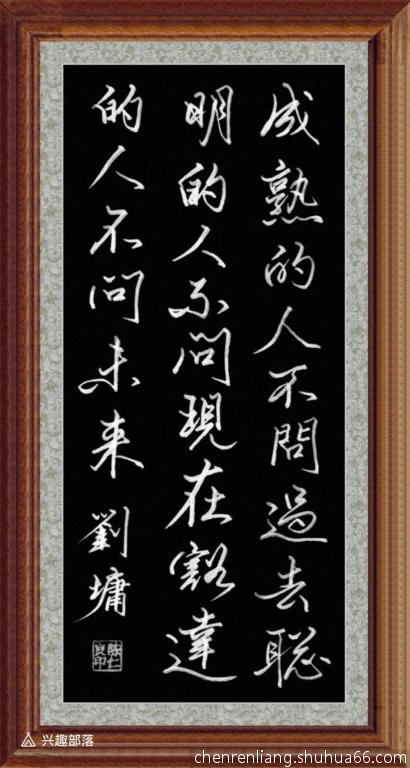 成熟的人不問過去聪
明的人不問現在豁達
的人不问未来 劉墉
陈仁良印
兴趣部落
chenrenliang.shuhua66.com